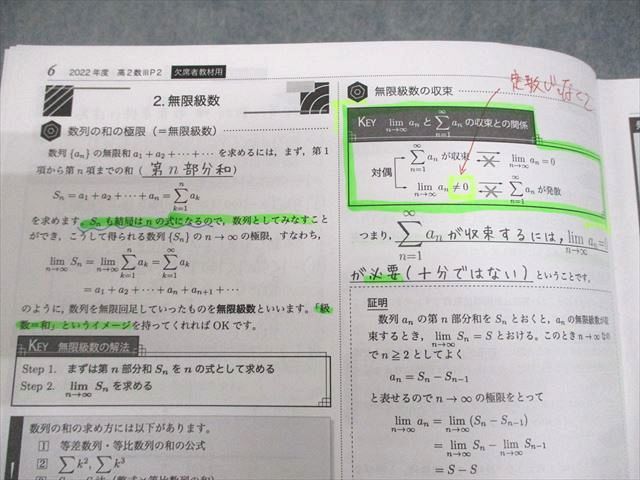 6 2022年度 高2数ⅢP2 欠席者教材用
2.無限級数
数列の和の極限（＝無限級数）
数列 {aₙ} の無限和 a₁ + a₂ + ⋯ + ⋯ を求めるには，まず，第1
項から第 n 項までの和（第n部分和）
Sₙ = a₁ + a₂ + ⋯ + aₙ = ∑_{k=1}^{n} aₖ
を求めます．Sₙ も結局は n の式になるので，数列としてみなすこと
ができ，こうして得られる数列 {Sₙ} の n→∞ の極限，すなわち，
lim_{n→∞} Sₙ = lim_{n→∞} ∑_{k=1}^{n} aₖ = ∑_{k=1}^{∞} aₖ
= a₁ + a₂ + ⋯ + aₙ + aₙ₊₁ + ⋯
のように，数列を無限回足していったものを無限級数といいます．「級
数＝和」というイメージを持ってくれれば OK です．
KEY 無限級数の解法
Step 1. まずは第 n 部分和 Sₙ を n の式として求める
Step 2. lim_{n→∞} Sₙ を求める
数列の和の求め方には以下があります．
1 等差数列・等比数列の和の公式
2 ∑k², ∑k³
無限級数の収束
KEY lim_{n→∞} aₙ と ∑_{n=1}^{∞} aₙ の収束との関係
対偶
∑_{n=1}^{∞} aₙ が収束 lim_{n→∞} aₙ = 0
lim_{n→∞} aₙ ≠ 0 ∑_{n=1}^{∞} aₙ が発散
つまり，∑_{n=1}^{∞} aₙ が収束するには，lim_{n→∞} aₙ = 0
が必要（十分ではない）ということです．
証明
数列 aₙ の第 n 部分和を Sₙ とおくと，aₙ の無限級数が収
束するとき，lim_{n→∞} Sₙ = S とおける．このとき n→∞ な
ので n ≧ 2 としてよく
aₙ = Sₙ − Sₙ₋₁
と表せるので n→∞ の極限をとって
lim_{n→∞} aₙ = lim_{n→∞} (Sₙ − Sₙ₋₁)
= lim_{n→∞} Sₙ − lim_{n→∞} Sₙ₋₁
= S − S